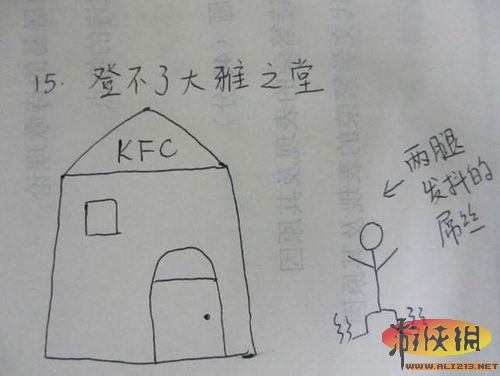 15. 登不了大雅之堂
KFC
两腿
发抖的
屌丝
游侠網
WWW.ALI213.NET